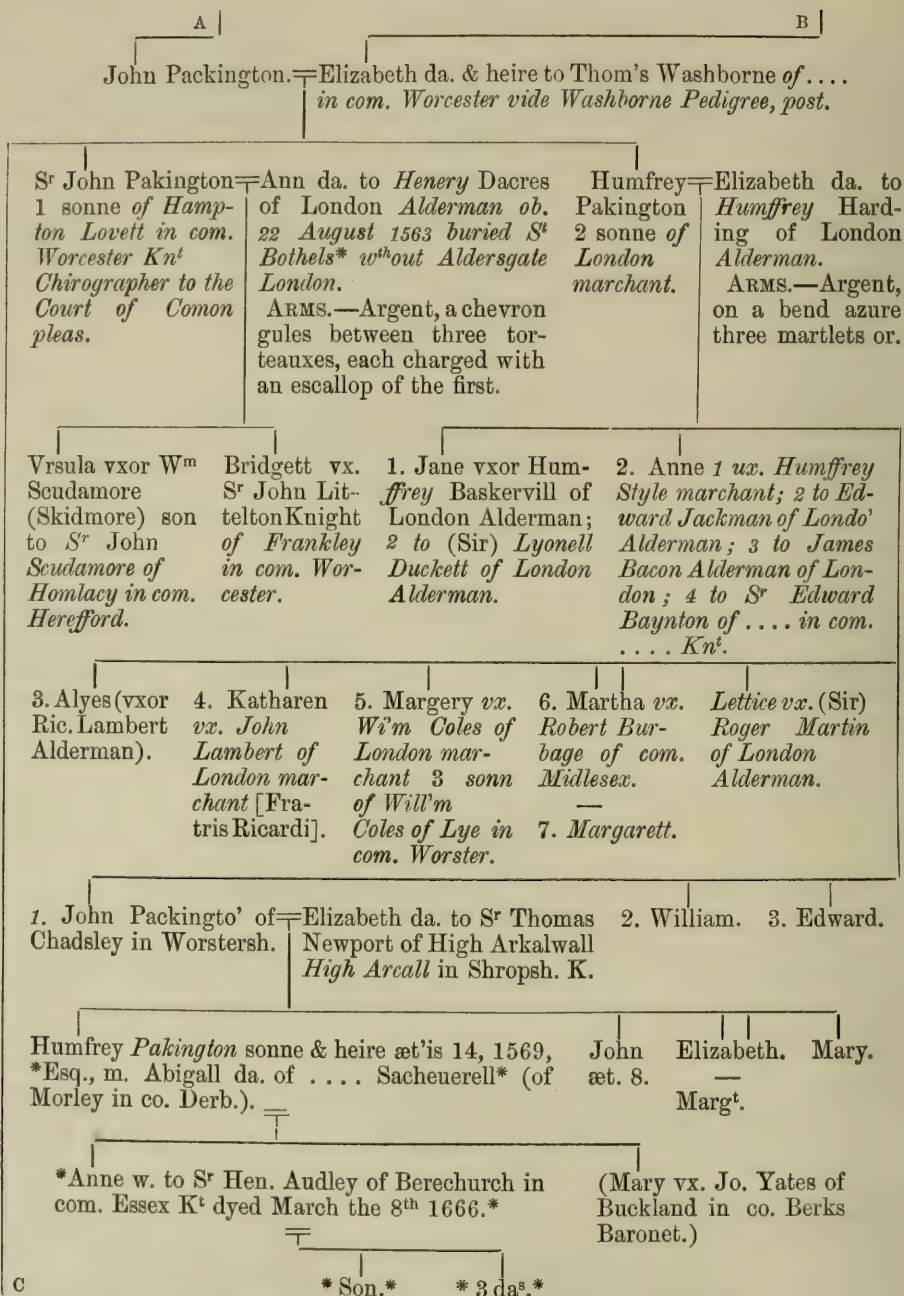 A B
John Packington.=Elizabeth da. & heire to Thom's Washborne of....
in com. Worcester vide Washborne Pedigree, post.
Sʳ John Pakington=Ann da. to Henery Dacres
1 sonne of Hamp-
ton Lovett in com.
Worcester Knᵗ
Chirographer to the
Court of Comon
pleas.
of London Alderman ob.
22 August 1563 buried Sᵗ
Bothels* wᵗʰout Aldersgate
London.
ARMS.—Argent, a chevron
gules between three tor-
teauxes, each charged with
an escallop of the first.
Humfrey=Elizabeth da. to
Pakington
2 sonne of
London
marchant.
Humffrey Hard-
ing of London
Alderman.
ARMS.—Argent,
on a bend azure
three martlets or.
Vrsula vxor Wᵐ
Scudamore
(Skidmore) son
to Sʳ John
Scudamore of
Homlacy in com.
Herefford.
Bridgett vx.
Sʳ John Lit-
telton Knight
of Frankley
in com. Wor-
cester.
1. Jane vxor Hum-
ffrey Baskervill of
London Alderman;
2 to (Sir) Lyonell
Duckett of London
Alderman.
2. Anne 1 ux. Humffrey
Style marchant; 2 to Ed-
ward Jackman of Londo'
Alderman; 3 to James
Bacon Alderman of Lon-
don; 4 to Sʳ Edward
Baynton of .... in com.
.... Knᵗ.
3. Alyes (vxor
Ric. Lambert
Alderman).
4. Katharen
vx. John
Lambert of
London mar-
chant [Fra-
tris Ricardi].
5. Margery vx.
Wi'm Coles of
London mar-
chant 3 sonn
of Will'm
Coles of Lye in
com. Worster.
6. Martha vx.
Robert Bur-
bage of com.
Midlesex.
—
7. Margarett.
Lettice vx. (Sir)
Roger Martin
of London
Alderman.
1. John Packingto' of=Elizabeth da. to Sʳ Thomas
Chadsley in Worstersh.
Newport of High Arkalwall
High Arcall in Shropsh. K.
2. William. 3. Edward.
Humfrey Pakington sonne & heire æt'is 14, 1569,
*Esq., m. Abigall da. of .... Sacheuerell* (of
Morley in co. Derb.).
John
æt. 8.
Elizabeth.
—
Margᵗ.
Mary.
*Anne w. to Sʳ Hen. Audley of Berechurch in
com. Essex Kᵗ dyed March the 8ᵗʰ 1666.*
(Mary vx. Jo. Yates of
Buckland in co. Berks
Baronet.)
C * Son.* * 3 daˢ.*